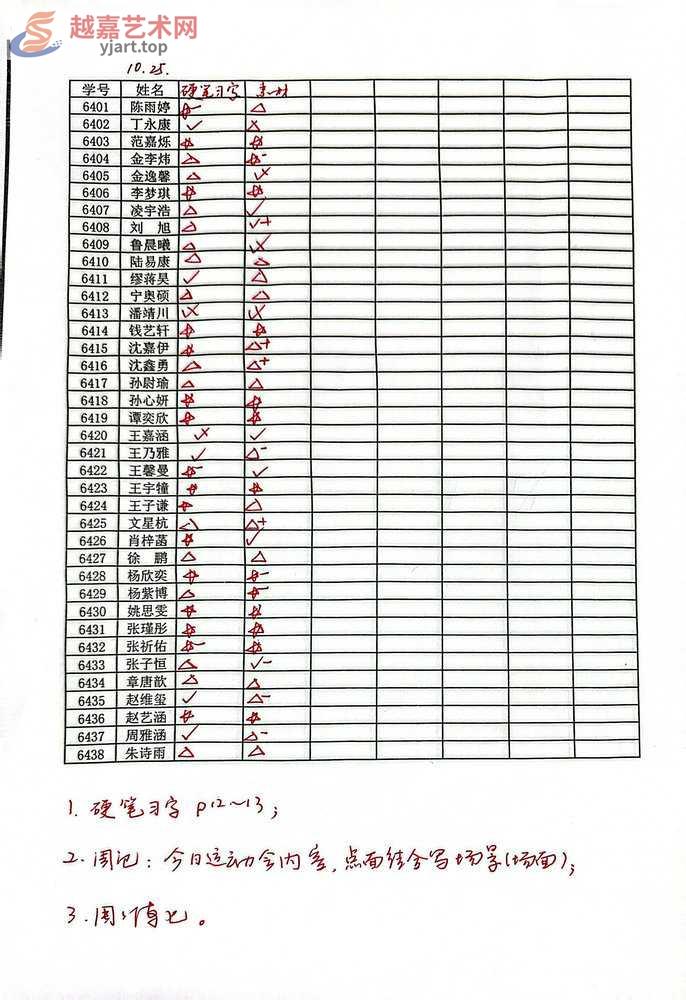 越嘉艺术网
yjart.top
10.25.
学号 姓名 硬笔习字 素材
6401 陈雨婷 ☆- △
6402 丁永康 ✓ ×
6403 范嘉烁 ☆ ☆
6404 金李炜 △ ☆-
6405 金逸馨 △
6406 李梦琪 ☆ ☆
6407 凌宇浩 △ ✓
6408 刘旭 △ ✓+
6409 鲁晨曦 △
6410 陆易康 △ △
6411 缪蒋昊 ✓ △
6412 宁奥硕 △ △
6413 潘靖川
6414 钱艺轩 ☆ ☆
6415 沈嘉伊 ☆ △+
6416 沈鑫勇 △ △+
6417 孙尉瑜 △ △
6418 孙心妍 ☆ ☆
6419 谭奕欣 ☆ ☆
6420 王嘉涵 ✓
6421 王乃雅 ✓ △-
6422 王馨曼 ☆- ✓
6423 王宇犝 ☆ ☆
6424 王子谦 ☆ △
6425 文星杭 △ △+
6426 肖梓菡 ☆ ✓
6427 徐鹏 △ △
6428 杨欣奕 ☆ ☆-
6429 杨紫博 △ ☆-
6430 姚思雯 ☆ ☆
6431 张瑾彤 ☆ ☆
6432 张祈佑 ☆- ☆
6433 张子恒 △ ✓-
6434 章唐歆 △ △
6435 赵维玺 ✓ △-
6436 赵艺涵 ☆ ☆
6437 周雅涵 ✓ △-
6438 朱诗雨 △ △
1. 硬笔习字 P12~13；
2. 周记：今日运动会内容，点面结合写场景(场面)；
3. 周